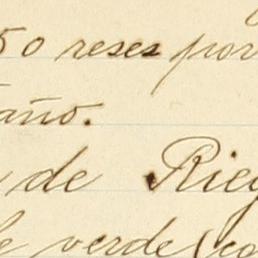 50 reses por
año.
de Rieg
le verde (co